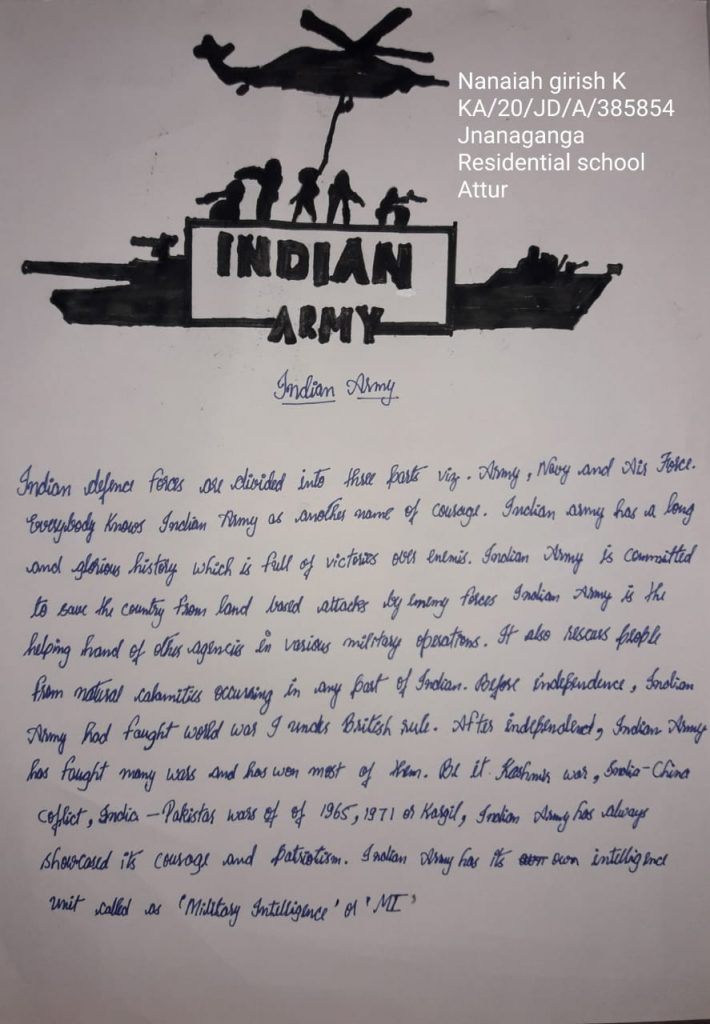 Nanaiah girish K
KA/20/JD/A/385854
Jnanaganga
Residential school
Attur
INDIAN
ARMY
Indian Army
Indian defence forces are divided into three parts viz. Army, Navy and Air Force.
Everybody knows Indian Army as another name of courage. Indian army has a long
and glorious history which is full of victories over enemis. Indian Army is committed
to save the country from land based attacks by enemy forces Indian Army is the
helping hand of other agencis in various military operations. It also rescues people
from natural calamities occurring in any part of Indian. Before independence, Indian
Army had faught world war I under British rule. After independend, Indian Army
has faught many wars and has won most of them. Be it Kashmir war, India-China
coflict, India - Pakistas wars of of 1965, 1971 or Kargil, Indian Army has always
showcased its courage and patriotism. Indian Army has its own intelligence
unit called as 'Military Intelligence' or 'MI'